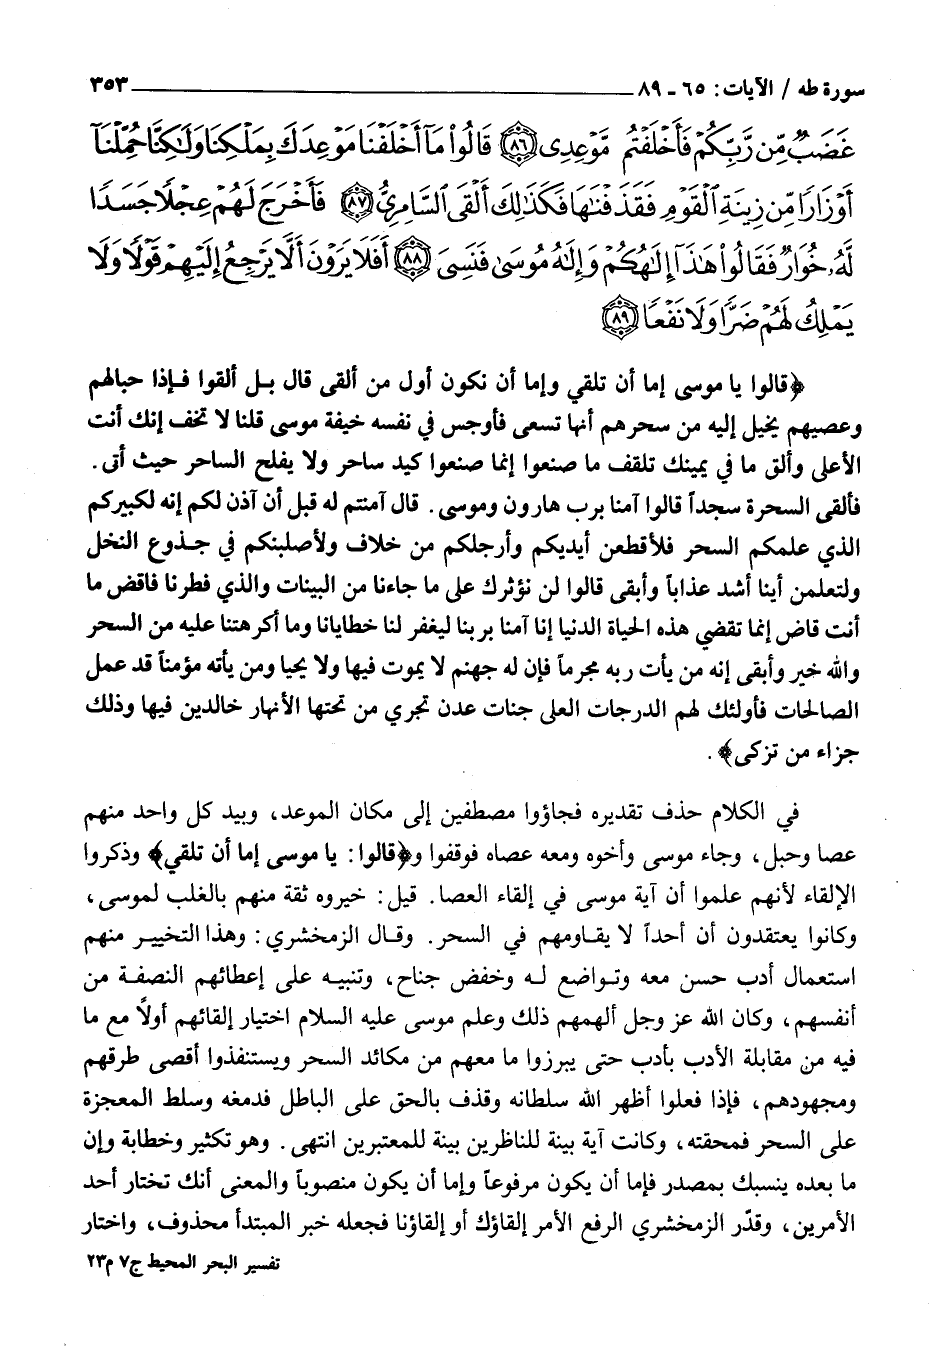 سورة طه / الآيات: ٦٥ - ٨٩ ٣٥٣
غَضَبٌ مِّن رَّبِّكُمْ فَأَخْلَفْتُم مَّوْعِدِى ﴿٨٦﴾ قَالُوا۟ مَآ أَخْلَفْنَا مَوْعِدَكَ بِمَلْكِنَا وَلَـٰكِنَّا حُمِّلْنَآ
أَوْزَارًا مِّن زِينَةِ ٱلْقَوْمِ فَقَذَفْنَـٰهَا فَكَذَٰلِكَ أَلْقَى ٱلسَّامِرِىُّ ﴿٨٧﴾ فَأَخْرَجَ لَهُمْ عِجْلًا جَسَدًا
لَّهُۥ خُوَارٌ فَقَالُوا۟ هَـٰذَآ إِلَـٰهُكُمْ وَإِلَـٰهُ مُوسَىٰ فَنَسِىَ ﴿٨٨﴾ أَفَلَا يَرَوْنَ أَلَّا يَرْجِعُ إِلَيْهِمْ قَوْلًا وَلَا
يَمْلِكُ لَهُمْ ضَرًّا وَلَا نَفْعًا ﴿٨٩﴾
﴿قالوا يا موسى إما أن تلقي وإما أن نكون أول من ألقى قال بـل ألقوا فـإذا حبالهم
وعصيهم يخيل إليه من سحرهم أنها تسعى فأوجس في نفسه خيفة موسى قلنا لا تخف إنك أنت
الأعلى وألق ما في يمينك تلقف ما صنعوا إنما صنعوا كيد ساحر ولا يفلح الساحر حيث أتى.
فألقى السحرة سجداً قالوا آمنا برب هارون وموسى. قال آمنتم له قبل أن آذن لكم إنه لكبيركم
الذي علمكم السحر فلأقطعن أيديكم وأرجلكم من خلاف ولأصلبنكم في جـذوع النخل
ولتعلمن أينا أشد عذاباً وأبقى قالوا لن نؤثرك على ما جاءنا من البينات والذي فطرنا فاقض ما
أنت قاض إنما تقضي هذه الحياة الدنيا إنا آمنا بربنا ليغفر لنا خطايانا وما أكرهتنا عليه من السحر
والله خير وأبقى إنه من يأت ربه مجرماً فإن له جهنم لا يموت فيها ولا يحيا ومن يأته مؤمناً قد عمل
الصالحات فأولئك لهم الدرجات العلى جنات عدن تجري من تحتها الأنهار خالدين فيها وذلك
جزاء من تزكى﴾.
في الكلام حذف تقديره فجاؤوا مصطفين إلى مكان الموعد، وبيد كل واحد منهم
عصا وحبل، وجاء موسى وأخوه ومعه عصاه فوقفوا و﴿قالوا: يا موسى إما أن تلقي﴾ وذكروا
الإلقاء لأنهم علموا أن آية موسى في إلقاء العصا. قيل: خيروه ثقة منهم بالغلب لموسى،
وكانوا يعتقدون أن أحداً لا يقاومهم في السحر. وقال الزمخشري: وهذا التخيير منهم
استعمال أدب حسن معه وتواضع له وخفض جناح، وتنبيه على إعطائهم النصفة من
أنفسهم، وكان الله عز وجل ألهمهم ذلك وعلم موسى عليه السلام اختيار إلقائهم أولاً مع ما
فيه من مقابلة الأدب بأدب حتى يبرزوا ما معهم من مكائد السحر ويستنفذوا أقصى طرقهم
ومجهودهم، فإذا فعلوا أظهر الله سلطانه وقذف بالحق على الباطل فدمغه وسلط المعجزة
على السحر فمحقته، وكانت آية بينة للناظرين بينة للمعتبرين انتهى. وهو تكثير وخطابة وإن
ما بعده ينسبك بمصدر فإما أن يكون مرفوعاً وإما أن يكون منصوباً والمعنى أنك تختار أحد
الأمرين، وقدّر الزمخشري الرفع الأمر إلقاؤك أو إلقاؤنا فجعله خبر المبتدأ محذوف، واختار
تفسير البحر المحيط ج٧ م٢٣